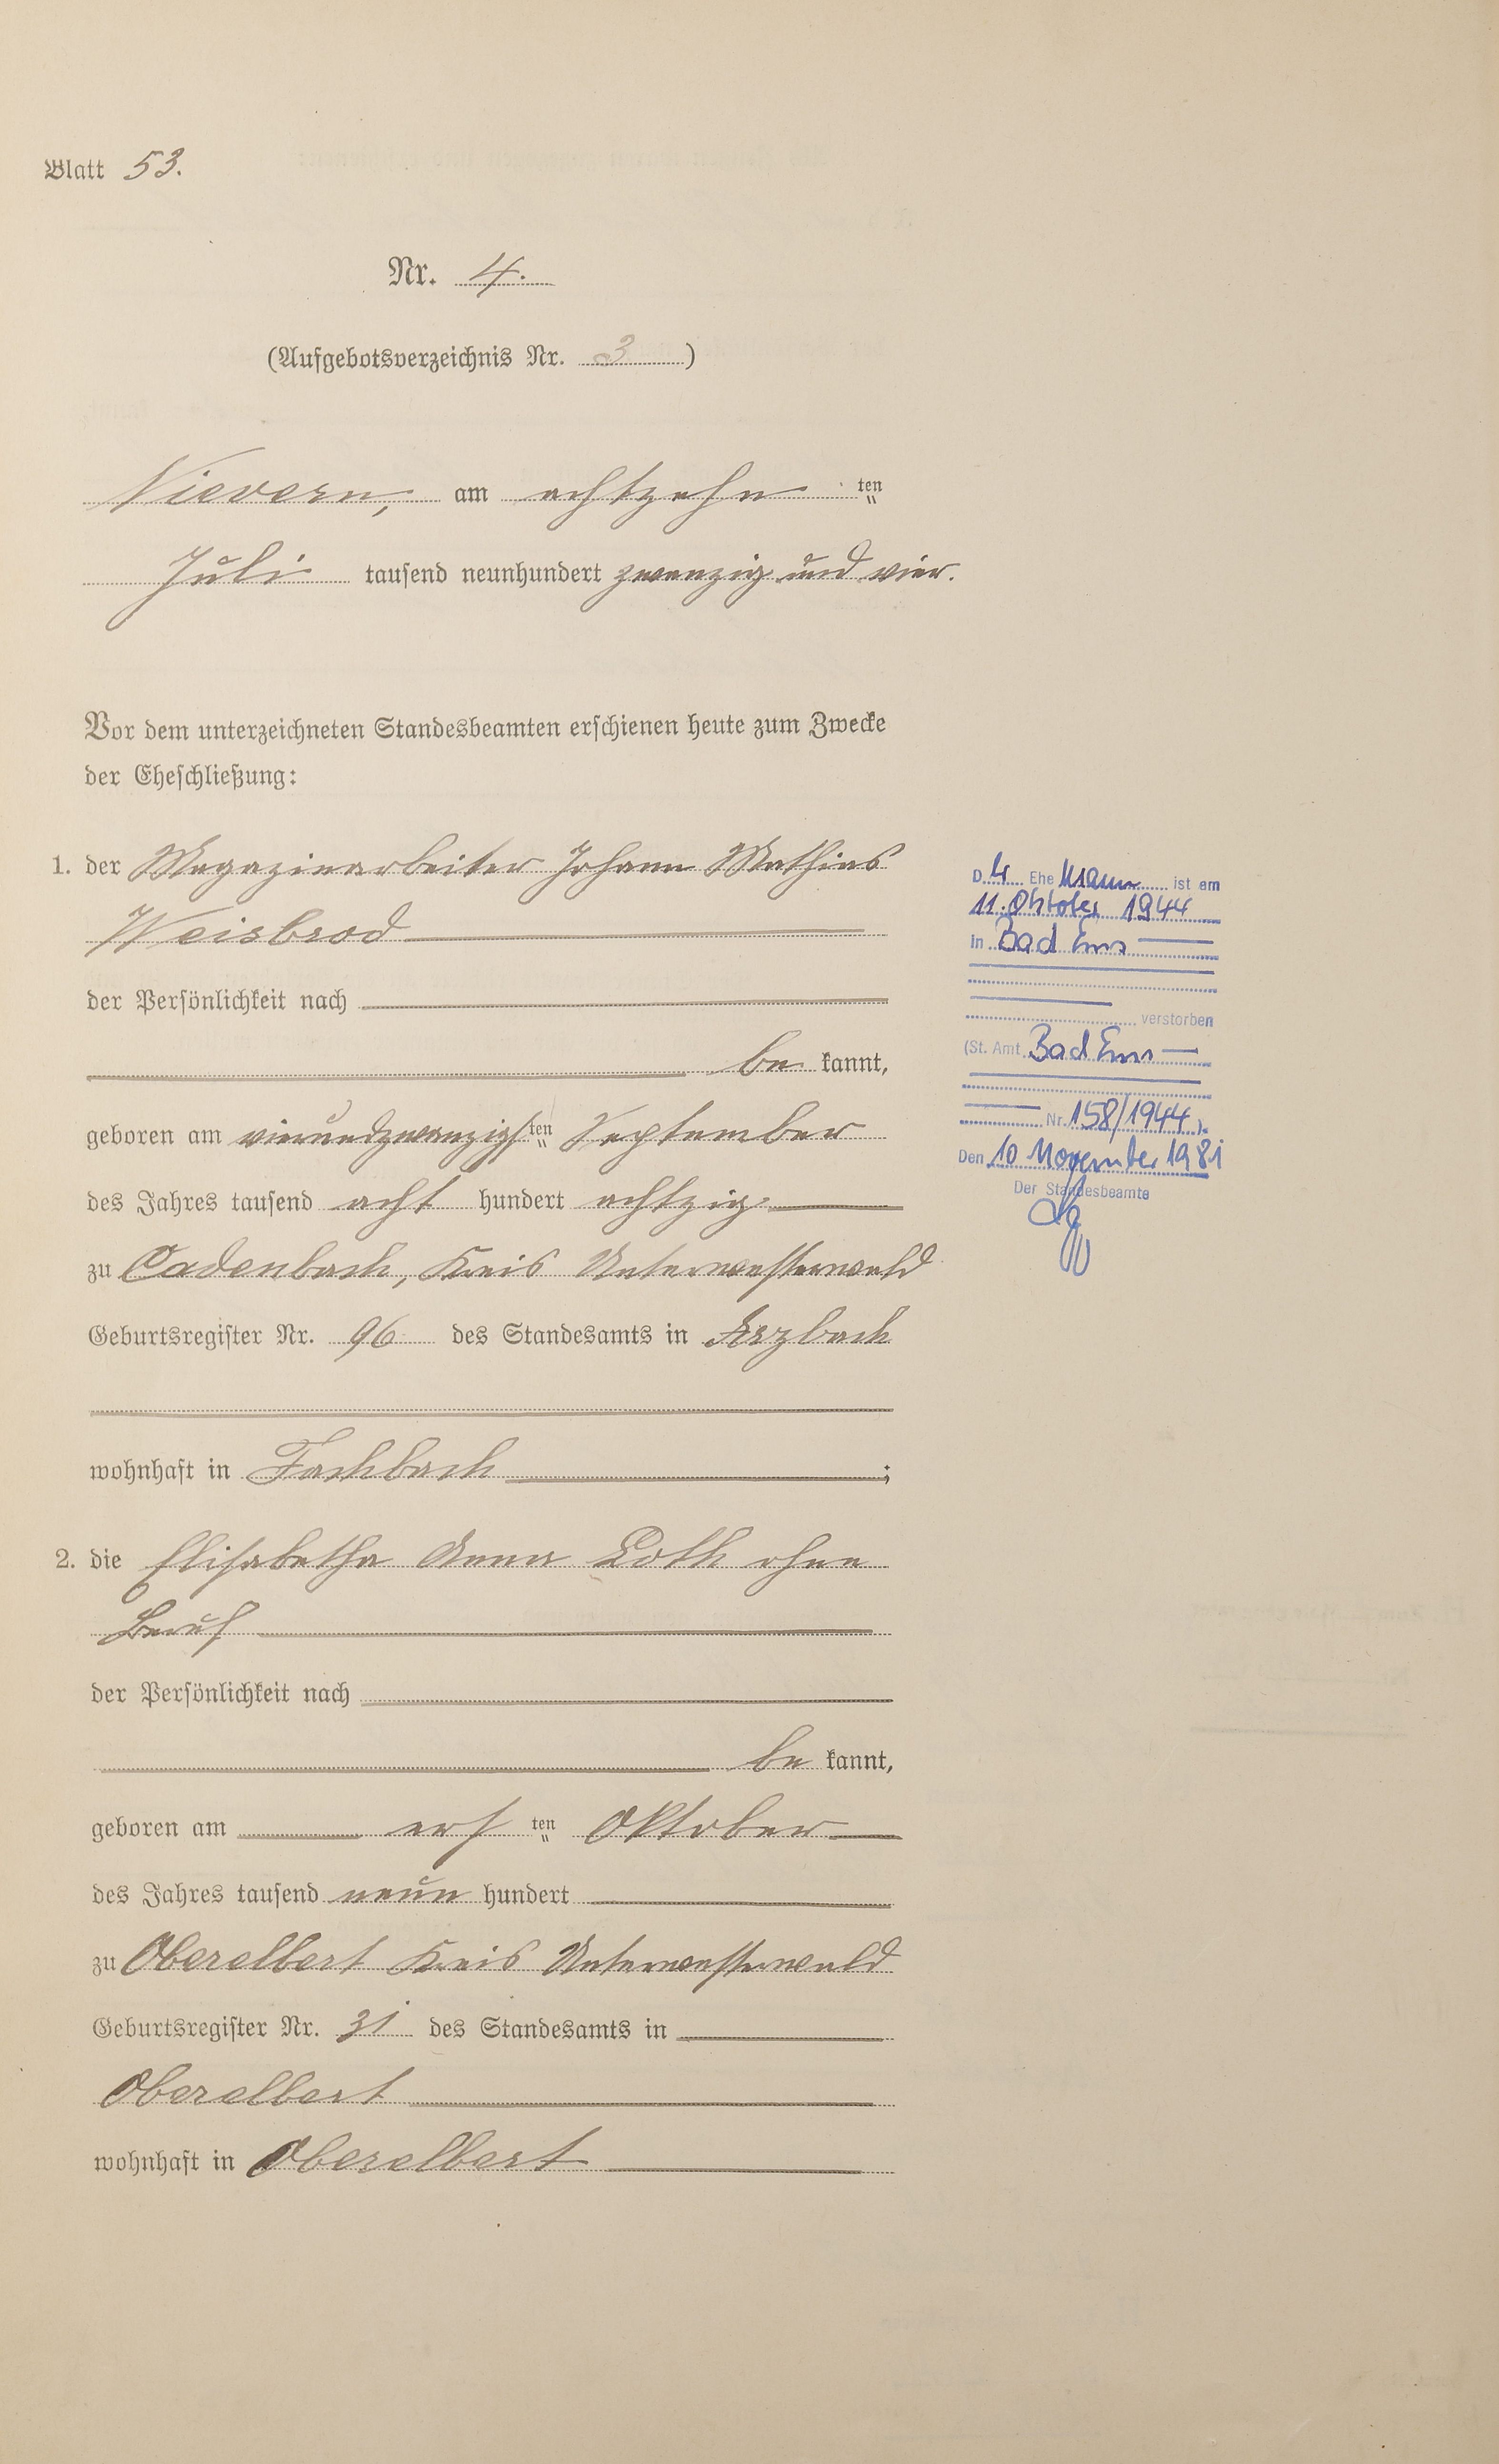 Blatt 53.
Nr. 4.
(Aufgebotsverzeichnis Nr. 3)
Nievern, am achtzehn ten
Juli tausend neunhundert zwanzig und vier.
Vor dem unterzeichneten Standesbeamten erschienen heute zum Zwecke
der Eheschließung:
1. der Magazinarbeiter Johann Mathias
Weisbrod
der Persönlichkeit nach
be kannt,
geboren am vierundzwanzigsten September
des Jahres tausend acht hundert achtzig
zu Cadenbach, Kreis Unterwesterwald
Geburtsregister Nr. 96 des Standesamts in Arzbach
wohnhaft in Fachbach ;
2. die Elisabetha Anna Loth ohne
Beruf
der Persönlichkeit nach
be kannt,
geboren am ers ten Oktober
des Jahres tausend neun hundert
zu Oberelbert Kreis Unterwesterwald
Geburtsregister Nr. 31 des Standesamts in
Oberelbert
wohnhaft in Oberelbert
D er Ehe mann ist am
11. Oktober 1944
in Bad Ems
verstorben
(St. Amt Bad Ems
Nr. 158/1944).
Den 10 November 1981
Der Standesbeamte